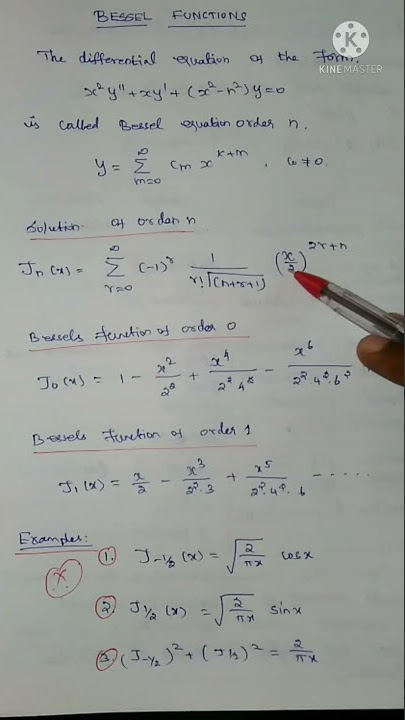 BESSEL FUNCTIONS
K
KINEMASTER
The differential equation of the Form.
x² y'' + xy' + (x² - n²) y = 0
is called Bessel equation order n.
y = ∑_{m=0}^{∞} Cm x^{k+m} , C₀ ≠ 0.
Solution of order n
Jn (x) = ∑_{r=0}^{∞} (-1)^r 1/(r! Γ(n+r+1)) (x/2)^{2r+n}
Bessels Function of order 0
J₀ (x) = 1 - x²/2² + x⁴/(2² 4²) - x⁶/(2² . 4² . 6²)
Bessels Function of order 1
J₁ (x) = x/2 - x³/(2² . 4) + x⁵/(2² . 4² . 6) - ....
Examples:
1. J-½ (x) = √(2/πx) cosx
2. J½ (x) = √(2/πx) sinx
3. (J-½)² + (J½)² = 2/πx